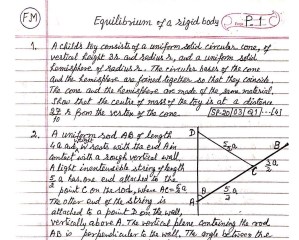 FM
Equilibrium of a rigid body
P. 1
1. A child's toy consists of a uniform solid circular cone, of
vertical height 3r and radius r, and a uniform solid
hemisphere of radius r. The circular bases of the cone
and the hemisphere are joined together so that they coincide.
The cone and the hemisphere are made of the same material.
Show that the centre of mass of the toy is at a distance
27/10 r from the vertex of the cone. [4]
2. A uniform rod AB of length
4a and weight W, rests with the end A in
contact with a rough vertical wall.
A light inextensible string of length
5/2 a has one end attached to the
point C on the rod, where AC = 5/2 a
The other end of the string is
attached to a point D on the wall,
vertically above A. The vertical plane containing the rod
AB is perpendicular to the wall. The angle between the
D
5/2 a
B
3/2 a
C
5/2 a
θ
A